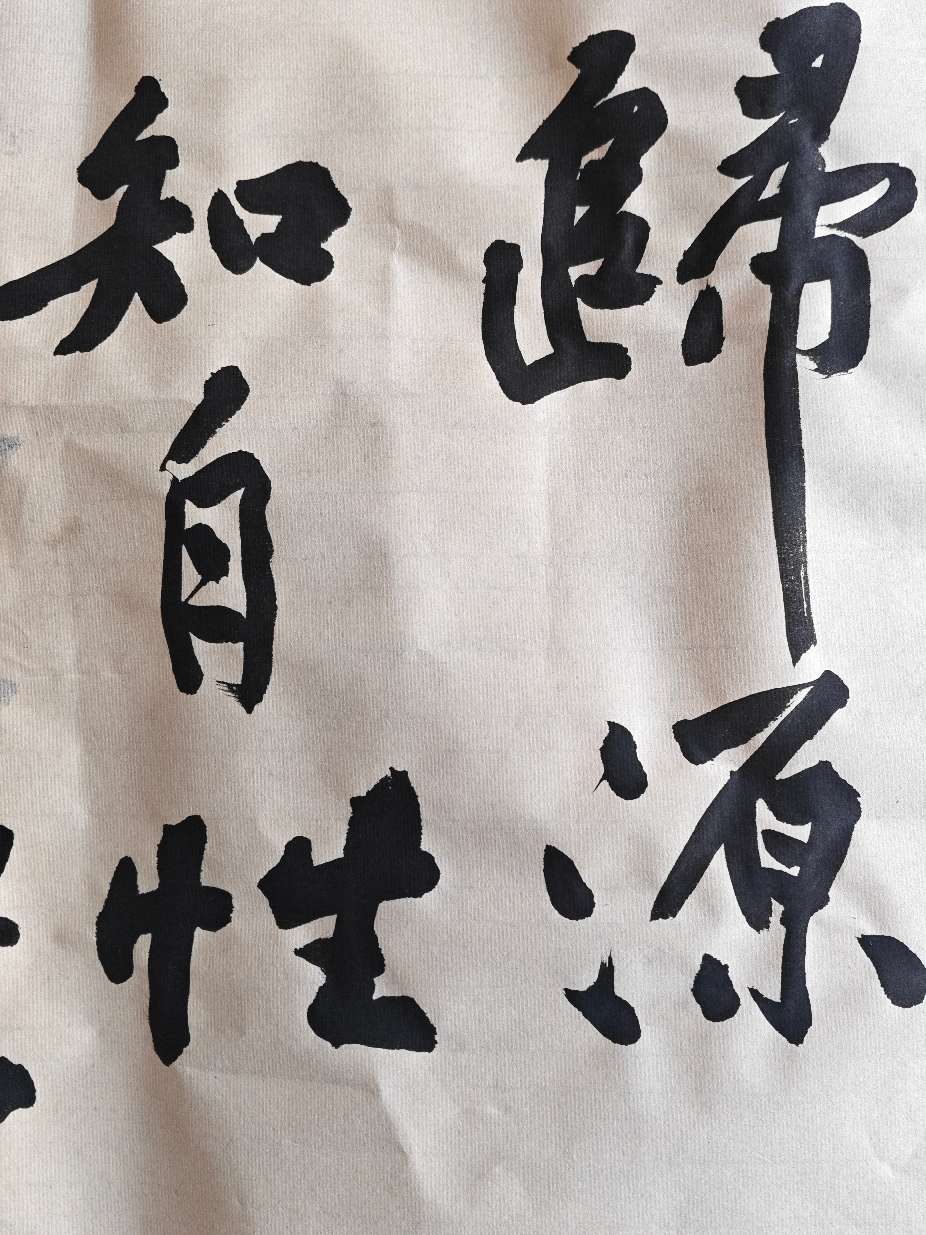 歸源
知自性